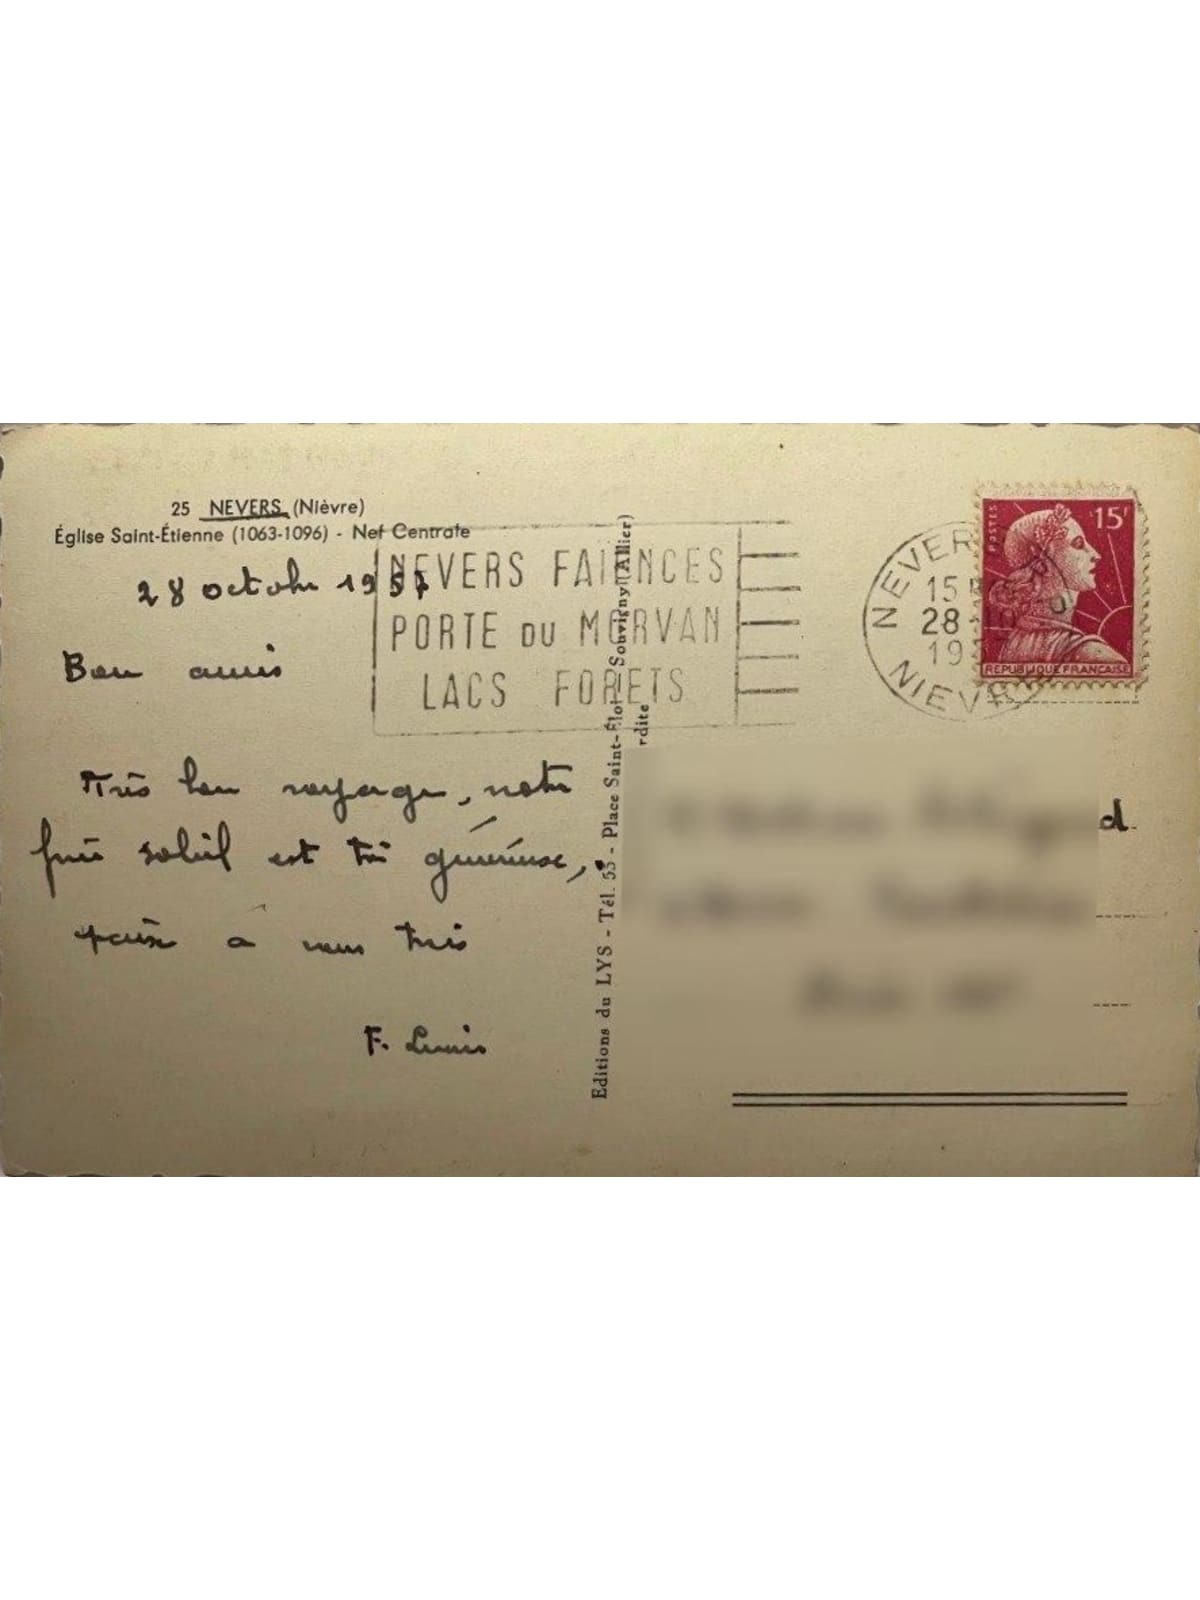 25 NEVERS (Nièvre)
Église Saint-Étienne (1063-1096) - Nef Centrale
28 octobre 1957
Bon amis
Très bon voyage, notre
frère soleil est très généreuse,
paix à vous trois
F. Louis
NEVERS FAIENCES
PORTE DU MORVAN
LACS FORETS
Editions du LYS - Tél. 53 - Place Saint-Éloi - Souvigny (Allier)
rdite
NEVERS
15
28
19
NIEVRE
POSTES
15F
REPUBLIQUE FRANCAISE
d